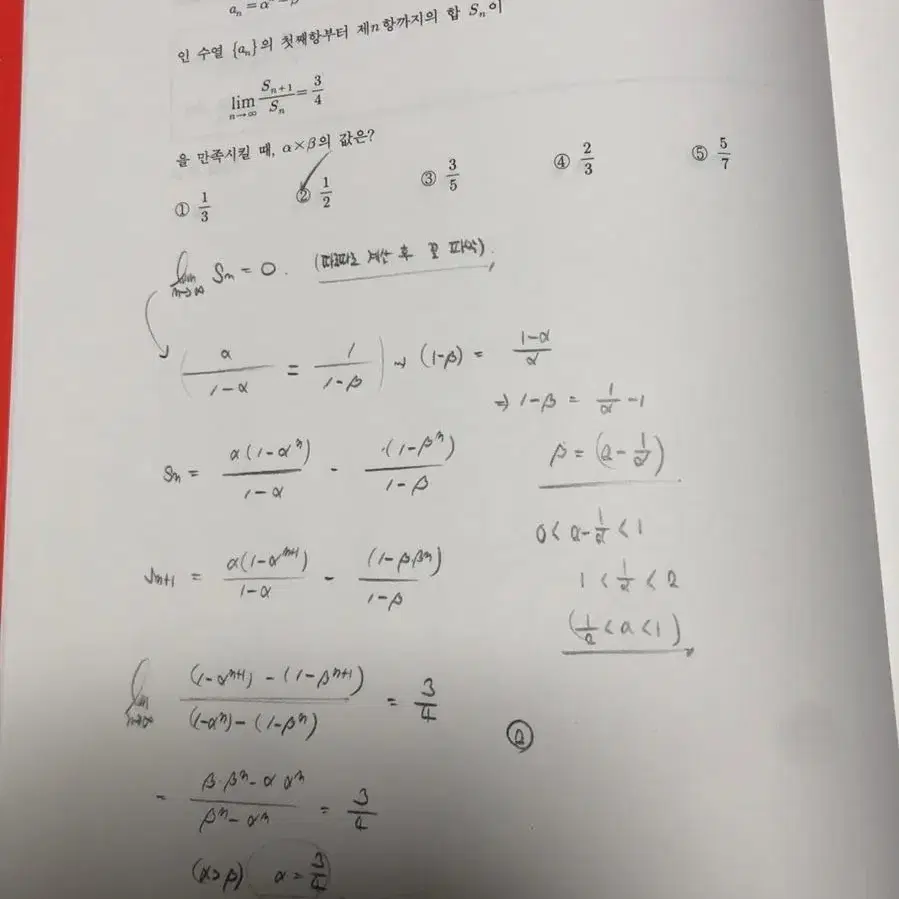 aₙ = α
인 수열 {aₙ}의 첫째항부터 제n항까지의 합 Sₙ이
lim_{n→∞} Sₙ₊₁/Sₙ = 3/4
을 만족시킬 때, α×β의 값은?
① 1/3 ② 1/2 ③ 3/5 ④ 2/3 ⑤ 5/7
lim_{n→∞} Sn = 0. (따로따로 계산 후 꼴 파악).
(α/(1-α) = 1/(1-β)) → (1-β) = (1-α)/α
⇒ 1-β = 1/α -1
Sn = α(1-αⁿ)/(1-α) - (1-βⁿ)/(1-β)
β = (2-1/α)
0 < 2-1/α < 1
Sn+1 = α(1-αⁿ⁺¹)/(1-α) - (1-ββⁿ)/(1-β)
1 < 1/α < 2
(1/2 < α < 1)
lim_{n→∞} ((1-αⁿ⁺¹) - (1-βⁿ⁺¹))/((1-αⁿ) - (1-βⁿ)) = 3/4
②
= (β·βⁿ - α αⁿ)/(βⁿ - αⁿ) = 3/4
(α>β) α = 3/4